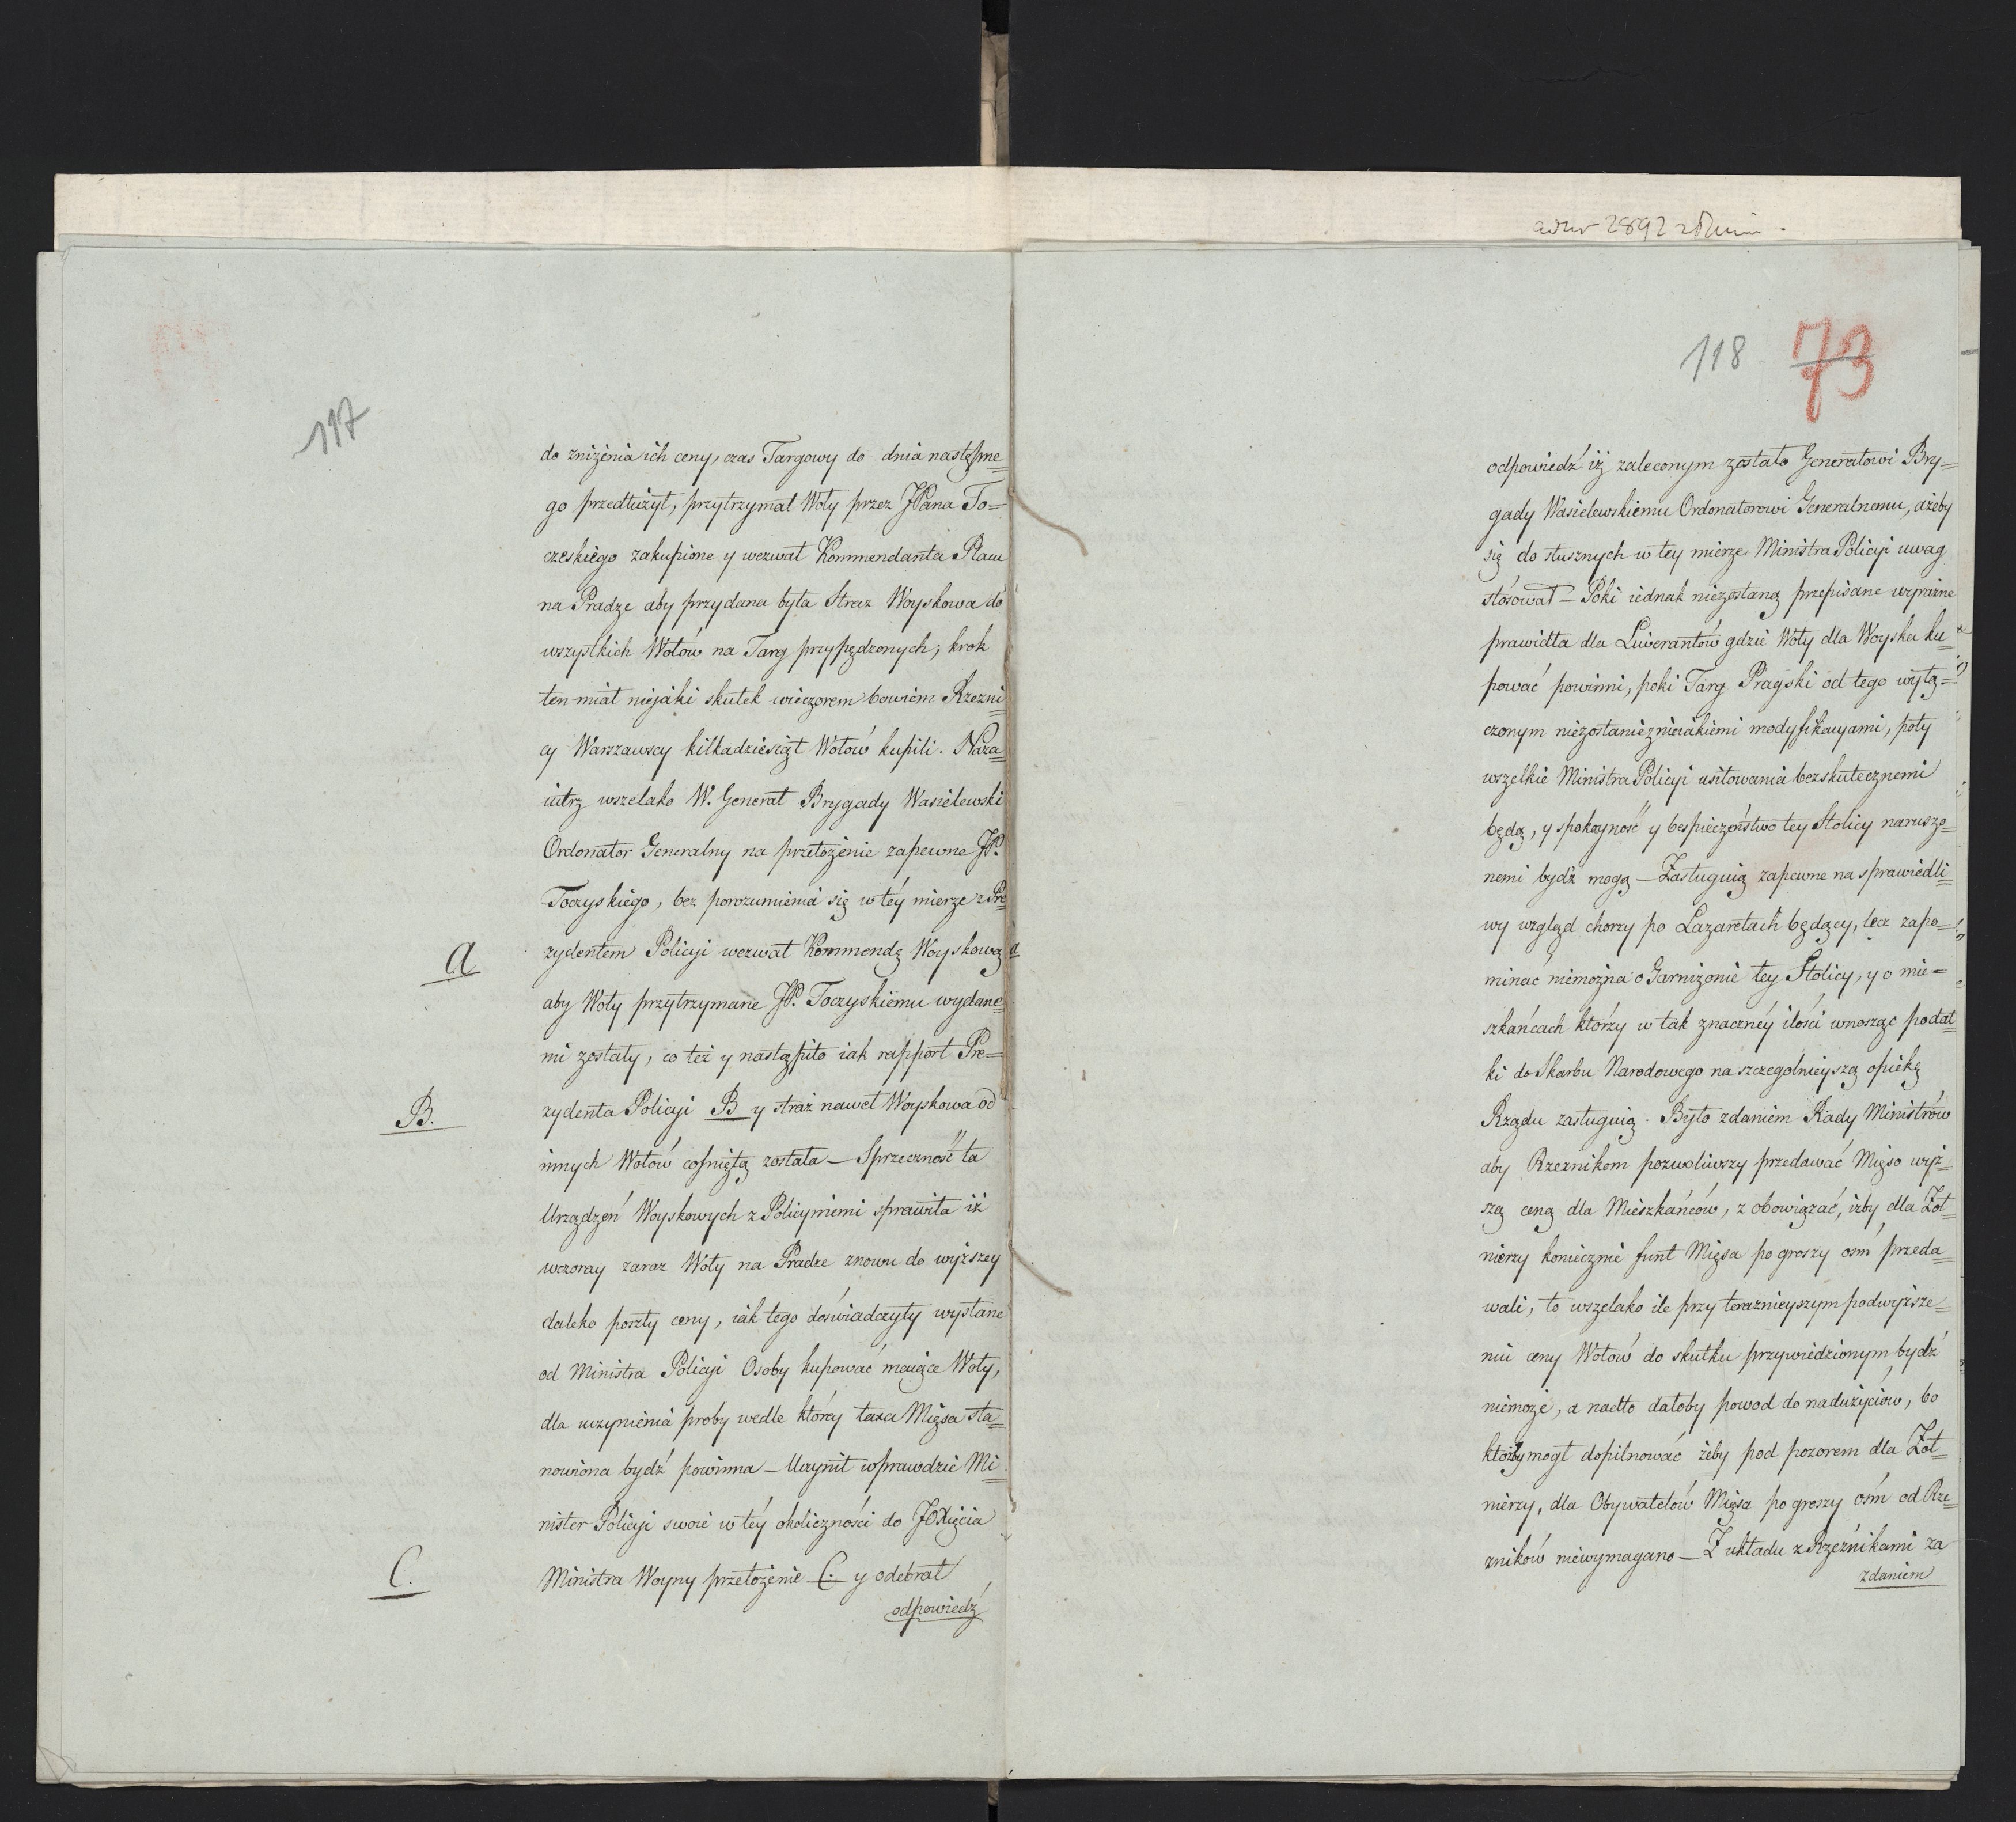 117
do zniżenia ich ceny, czas Targowy do dnia następne=
go przedłużył, przytrzymał Woły przez JPana To=
czeskiego zakupione y wezwał Kommendanta Placu
na Pradze aby przydana była Straz Woyskowa do
wszystkich Wołów na Targ przypędzonych; krok
ten miał niejaki skutek wieczorem bowiem Rzezni=
cy Warszawscy kilkadziesiąt Wołów kupili. Naza=
iutrz wszelako W. Generał Brygady Wasielewski
Ordonator Generalny na przełożenie zapewne JP.
Toczyskiego, bez porozumienia się w téy mierze z Pre=
a
zydentem Policyi wezwał Kommendę Woyskową a
aby Woły przytrzymane JP. Toczyskiemu wydane=
mi zostały, co też y nastąpiło iak rapport Pre=
B.
zydenta Policyi B y straż nawet Woyskowa od
innych Wołów cofniętą została — Sprzeczność ta
Urządzeń Woyskowych z Policynemi sprawiła iż
wczoray zaraz Woły na Pradze znowu do wyższey
daleko poszły ceny, iak tego doświadczyły wysłane
od Ministra Policyi Osoby kupować maiące Woły,
dla uczynienia proby wedle którey taxa Mięsa sta=
nowiona bydź powinna — Uczynił wprawdzie Mi=
nister Policyi swoie w téy okoliczności do JOXięcia
C.
Ministra Woyny przełożenie C. y odebrał
odpowiedź
118 73
odpowiedź iż zaleconym zostało Generałowi Bry=
gady Wasielewskiemu Ordonatorowi Generalnemu, ażeby
się do słusznych w tey mierze Ministra Policyi uwag
stósował — Poki iednak niezostaną przepisane wyraźne
prawidła dla Liwerantów gdzie Woły dla Woyska ku=
pować powinni, poki Targ Pragski od tego wyłą=
czonym niezostanie z nieiakiemi modyfikacyami, poty
wszelkie Ministra Policyi usiłowania bezskutecznemi
będą, y spokoyność y bespieczeństwo tey Stolicy naruszo=
nemi bydź mogą — Zasługuią zapewne na sprawiedli=
wy wzgląd chorzy po Lazaretach będący, lecz zapo=
minać niemożna o Garnizonie tey Stolicy, y o mie=
szkańcach którzy w tak znaczney ilości wnosząc podat=
ki do Skarbu Narodowego na szczegolnieyszą opiekę
Rządu zasługuią. Było zdaniem Rady Ministrów
aby Rzeźnikom pozwoliwszy przedawać Mięso wyż=
szą ceną dla Mieszkańców, zobowiązać, iżby dla Żoł=
nierzy koniecznie funt Mięsa po groszy ośm przeda=
wali, to wszelako ile przy teraznieyszym podwyższe=
niu ceny Wołów do skutku przywiedzionym bydź
niemoże, a nadto dałoby powod do nadużyciów, bo
któżby mogł dopilnować żeby pod pozorem dla Żoł=
nierzy, dla Obywatelów Mięsa po groszy ośm od Rze=
zników niewymagano — Z układu z Rzeźnikami za
zdaniem